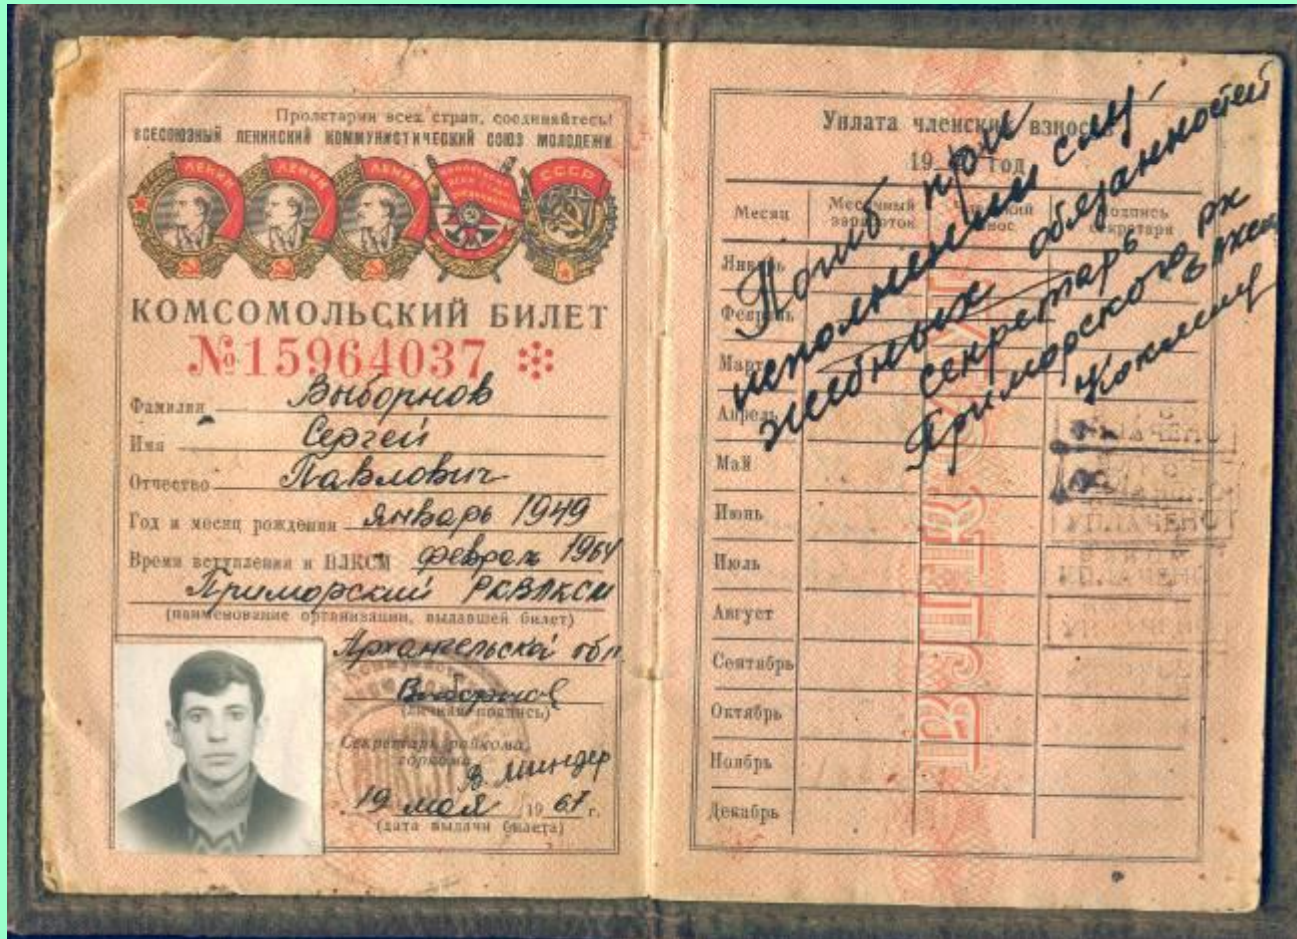 Пролетарии всех стран, соединяйтесь!
ВСЕСОЮЗНЫЙ ЛЕНИНСКИЙ КОММУНИСТИЧЕСКИЙ СОЮЗ МОЛОДЕЖИ
ЛЕНИН ЛЕНИН ЛЕНИН СССР
КОМСОМОЛЬСКИЙ БИЛЕТ
№15964037
Фамилия Выборнов
Имя Сергей
Отчество Павлович
Год и месяц рождения январь 1949
Время вступления в ВЛКСМ февраль 1964
Приморский РКВЛКСМ
(наименование организации, выдавшей билет)
Архангельской обл
Выборнов
(личная подпись)
Секретарь райкома,
горкома
В. Миндер
19 мая 1967 г.
(дата выдачи билета)
Уплата членских взносов
19 год
Месяц Месячный заработок Членский взнос Подпись секретаря
Январь
Февраль
Март
Апрель
Май
Июнь
Июль
Август
Сентябрь
Октябрь
Ноябрь
Декабрь
Погиб при
исполнении слу-
жебных обязанностей
секретарь РК
Приморского ВЛКСМ
ВЛКСМ
УПЛАЧЕНО
УПЛАЧЕНО
УПЛАЧЕНО
УПЛАЧЕНО